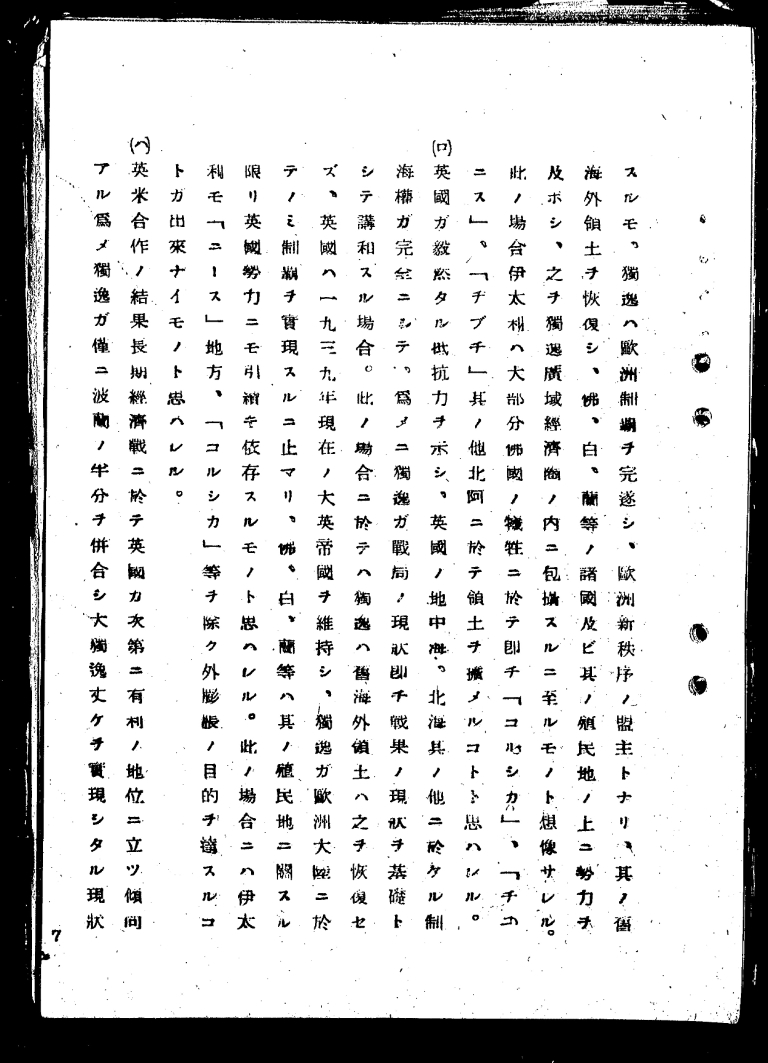 スルモ、獨逸ハ歐洲制覇ヲ完遂シ、歐洲新秩序ノ盟主トナリ、其ノ舊
海外領土ヲ恢復シ、佛、白、蘭等ノ諸國及ビ其ノ殖民地ノ上ニ勢力ヲ
及ボシ、之ヲ獨逸廣域經濟圈ノ内ニ包攝スルニ至ルモノト想像サレル。
此ノ場合伊太利ハ大部分佛國ノ犠牲ニ於テ卽チ「コルシカ」、「チユ
ニス」、「ヂブチ」其ノ他北阿ニ於テ領土ヲ擴メルコトト思ハレル。
(ロ)英國ガ毅然タル抵抗力ヲ示シ、英國ノ地中海、北海其ノ他ニ於ケル制
海權ガ完全ニシテ、爲メニ獨逸ガ戰局ノ現狀卽チ戰果ノ現狀ヲ基礎ト
シテ講和スル場合。此ノ場合ニ於テハ獨逸ハ舊海外領土ハ之ヲ恢復セ
ズ、英國ハ一九三九年現在ノ大英帝國ヲ維持シ、獨逸ガ歐洲大陸ニ於
テノミ制覇ヲ實現スルニ止マリ、佛、白、蘭等ハ其ノ殖民地ニ關スル
限リ英國勢力ニモ引續キ依存スルモノト思ハレル。此ノ場合ニハ伊太
利モ「ニース」地方、「コルシカ」等ヲ除ク外膨脹ノ目的ヲ達スルコ
トガ出來ナイモノト思ハレル。
(ハ)英米合作ノ結果長期經濟戰ニ於テ英國カ次第ニ有利ノ地位ニ立ツ傾向
アル爲メ獨逸ガ僅ニ波蘭ノ半分ヲ併合シ大獨逸丈ケヲ實現シタル現狀
7